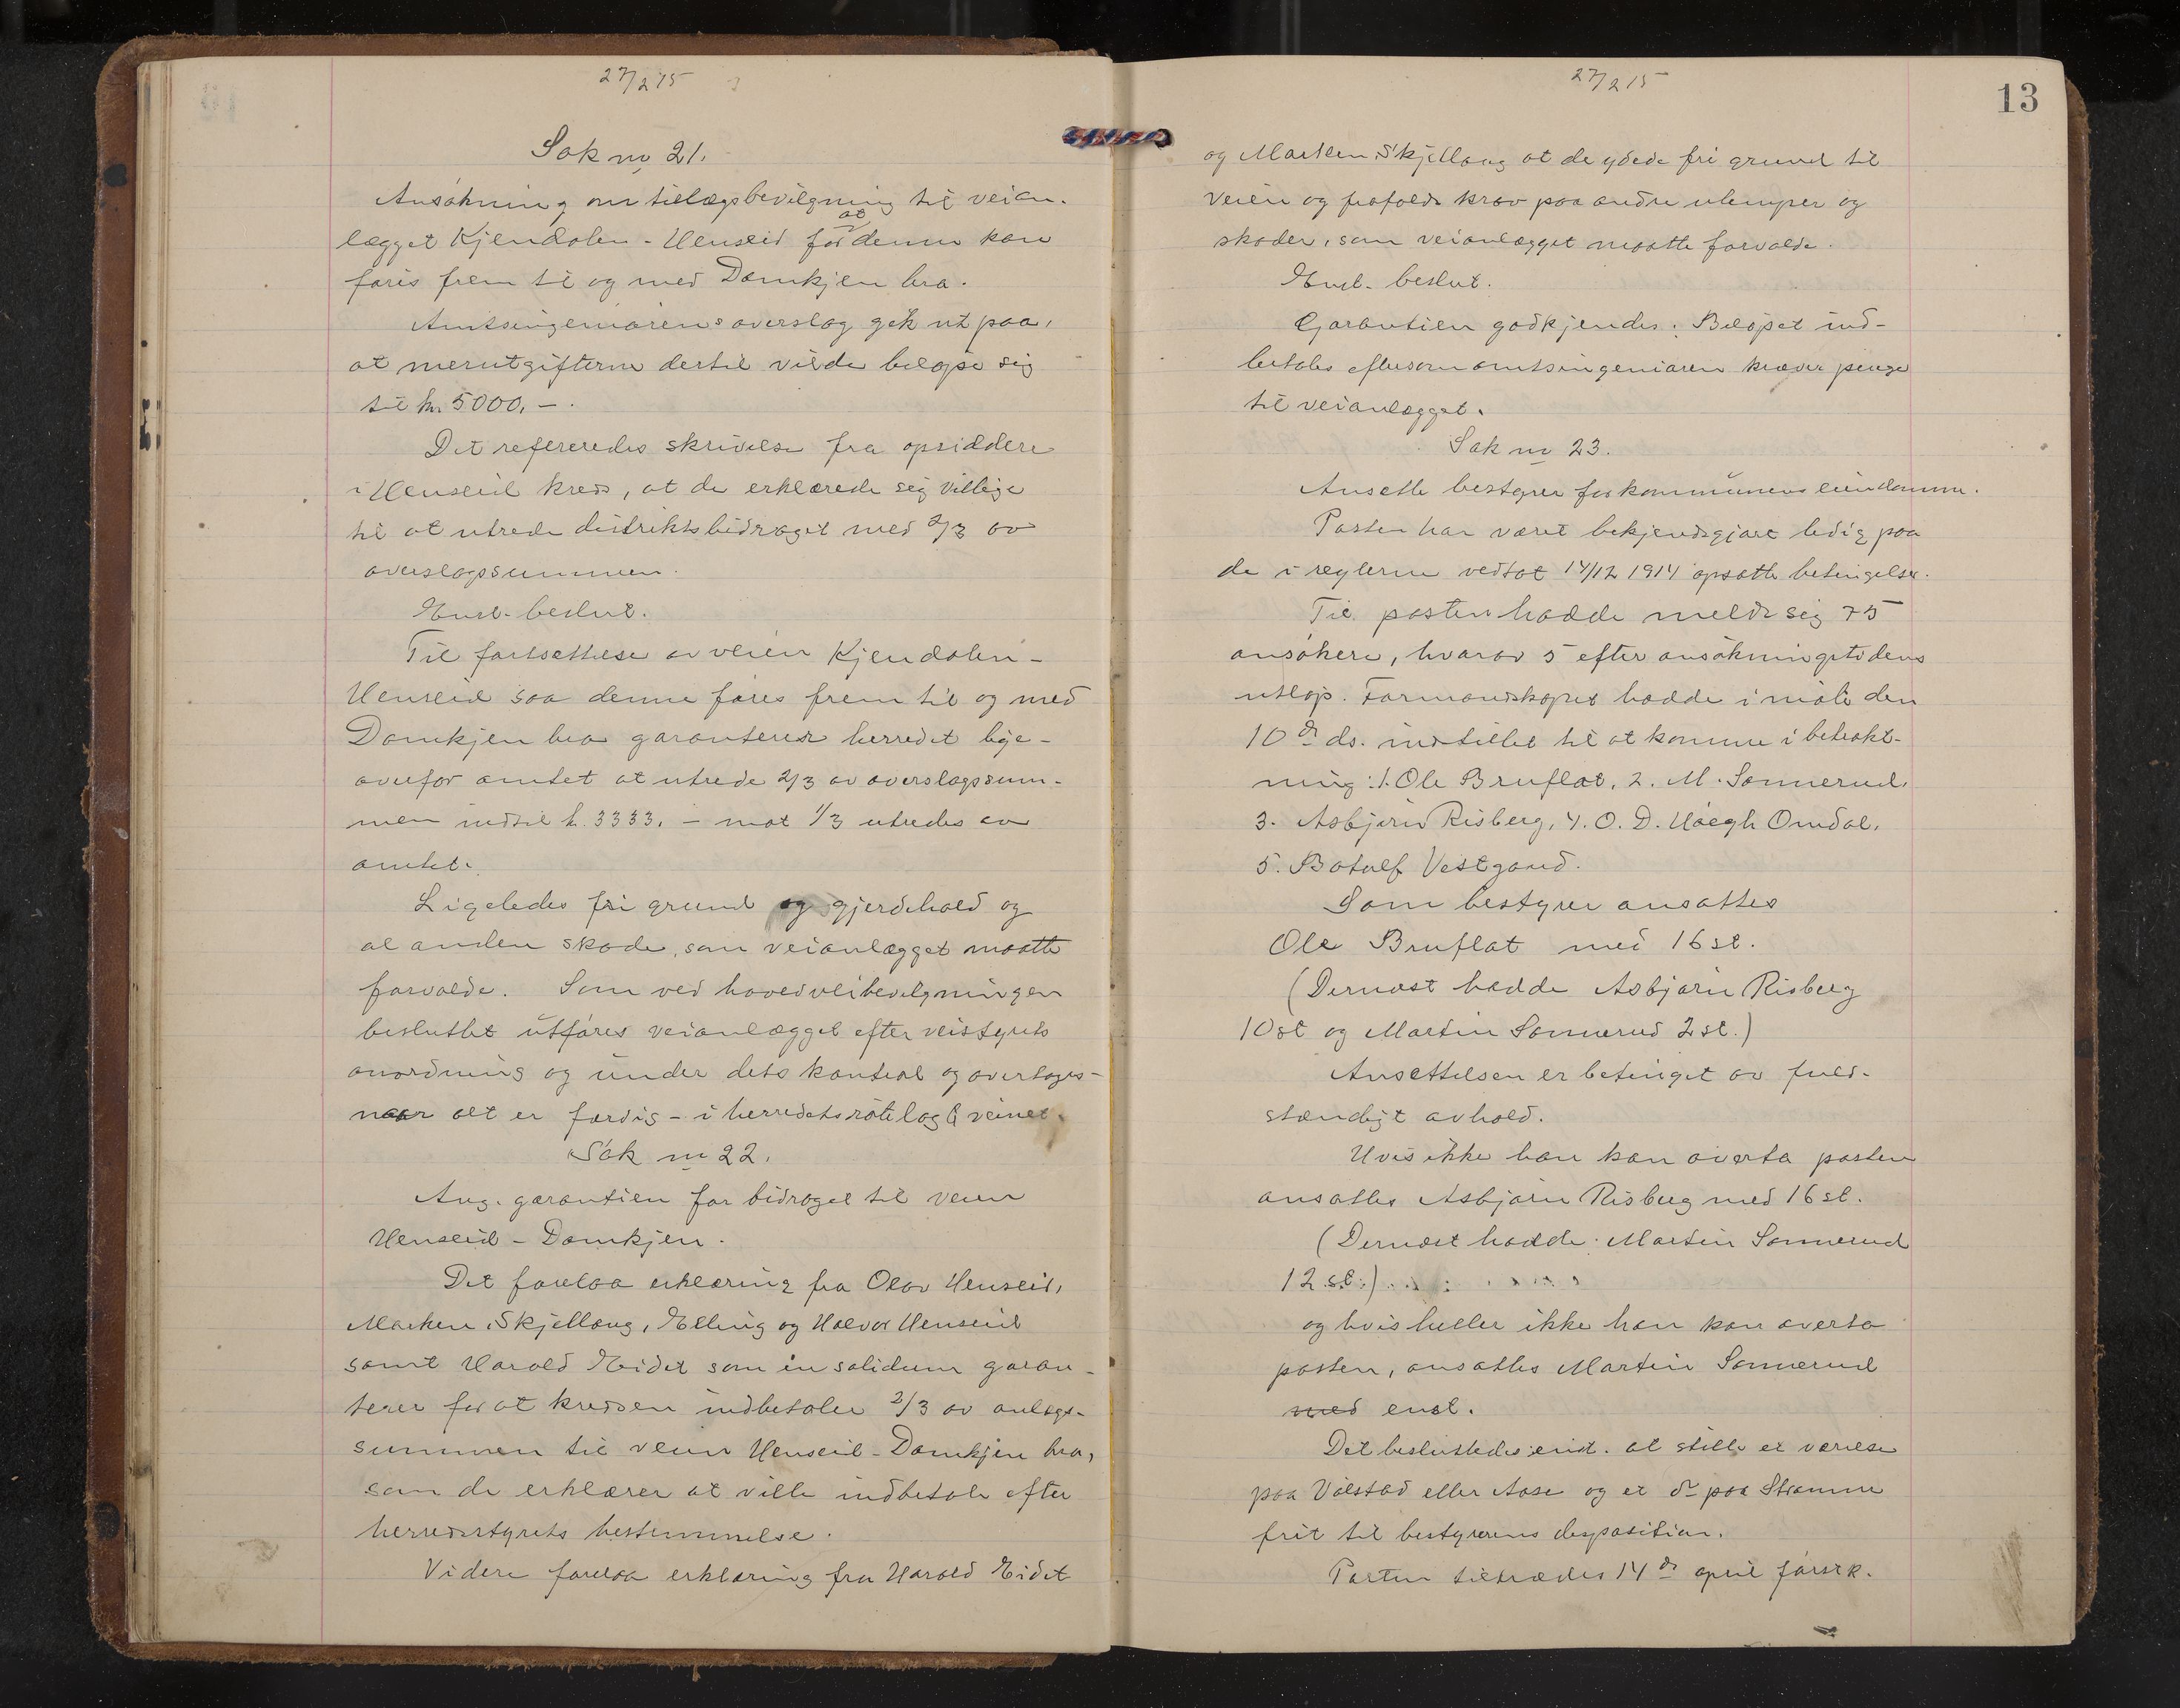 27/2 15
Sak no 21.
Ansökning om tillægsbevilgning til veian-
lægget Kjendalen - Henseid for at denne kan
føres frem til og med Damkjen bra.
Amtsingeniørens overslag gik ut paa,
at merutgifterne dertil vilde beløpe sig
til kr. 5000,-.
Det refereredes skrivelse fra opsiddere
i Henseid kreds, at de erklærede sig villige
til at utrede distriktsbidraget med 2/3 av
overslagssummen.
Enst. beslut.
Til fortsættelse av veien Kjendalen -
Henseid saa denne føres frem til og med
Damkjen bra garanterer herredet lige-
overfor amtet at utrede 2/3 av overslagssum-
men indtil k. 3333,- mot 1/3 utredes av
amtet.
Ligeledes fri grund og gjerdehold og
al anden skade, som veianlægget maatte
forvolde. Som ved hovedveibevilgningen
besluttet utføres veianlægget efter veistyrets
anordning og under dets kontrol og overtages -
naar alt er færdig - i herredets rodelagte veinet.
Sak no 22.
Ang. garantien for bidraget til veien
Henseid - Damkjen.
Det forelaa erklæring fra Olav Henseid,
Marken Skjellaug, Elling og Halvor Henseid
samt Harald Eidet som in solidum garan-
terer for at kredsen indbetaler 2/3 av anlægs-
summen til veien Henseid - Damkjen bra,
som de erklærer at ville indbetale efter
herredsstyrets bestemmelse.
Videre forelaa erklæring fra Harald Eidet
27/2 15
13
og Marken Skjellaug at de ydede fri grund til
veien og frafaldt krav paa andre ulemper og
skader, som veianlægget maatte forvolde.
Enst. beslut.
Garantien godkjendes. Beløpet ind-
betales eftersom amtsingeniøren kræver penge
til veianlægget.
Sak no 23.
Ansætte bestyrer for kommunens eiendomme.
Posten har været bekjendtgjort ledig paa
de i reglerne vedtat 14/12 1914 opsatte betingelser.
Til posten hadde meldt sig 75
ansökere, hvorav 5 efter ansökningstidens
utløp. Formandskapet hadde i møte den
10de ds. indstillet til at komme i betrakt-
ning: 1. Ole Bruflat, 2. M. Sønnerud,
3. Asbjørn Risberg, 4. O. D. Høegh Omdal,
5. Botolf Vestgaard.
Som bestyrer ansattes
Ole Bruflat med 16 st.
(Dernæst hadde Asbjørn Risberg
10 st og Martin Sønnerud 2 st.)
Ansættelsen er betinget av fuld-
stændigt avhold.
Hvis ikke han kan overta posten
ansattes Asbjørn Risberg med 16 st.
(Dernæst hadde Martin Sønnerud
12 st.)
og hvis heller ikke han kan overta
posten, ansattes Martin Sønnerud
med enst.
Det besluttedes enst. at stille et værelse
paa Vølstad eller Aase og et do paa Strømme
frit til bestyrerens disposition.
Posten tiltrædes 14de april førstk.